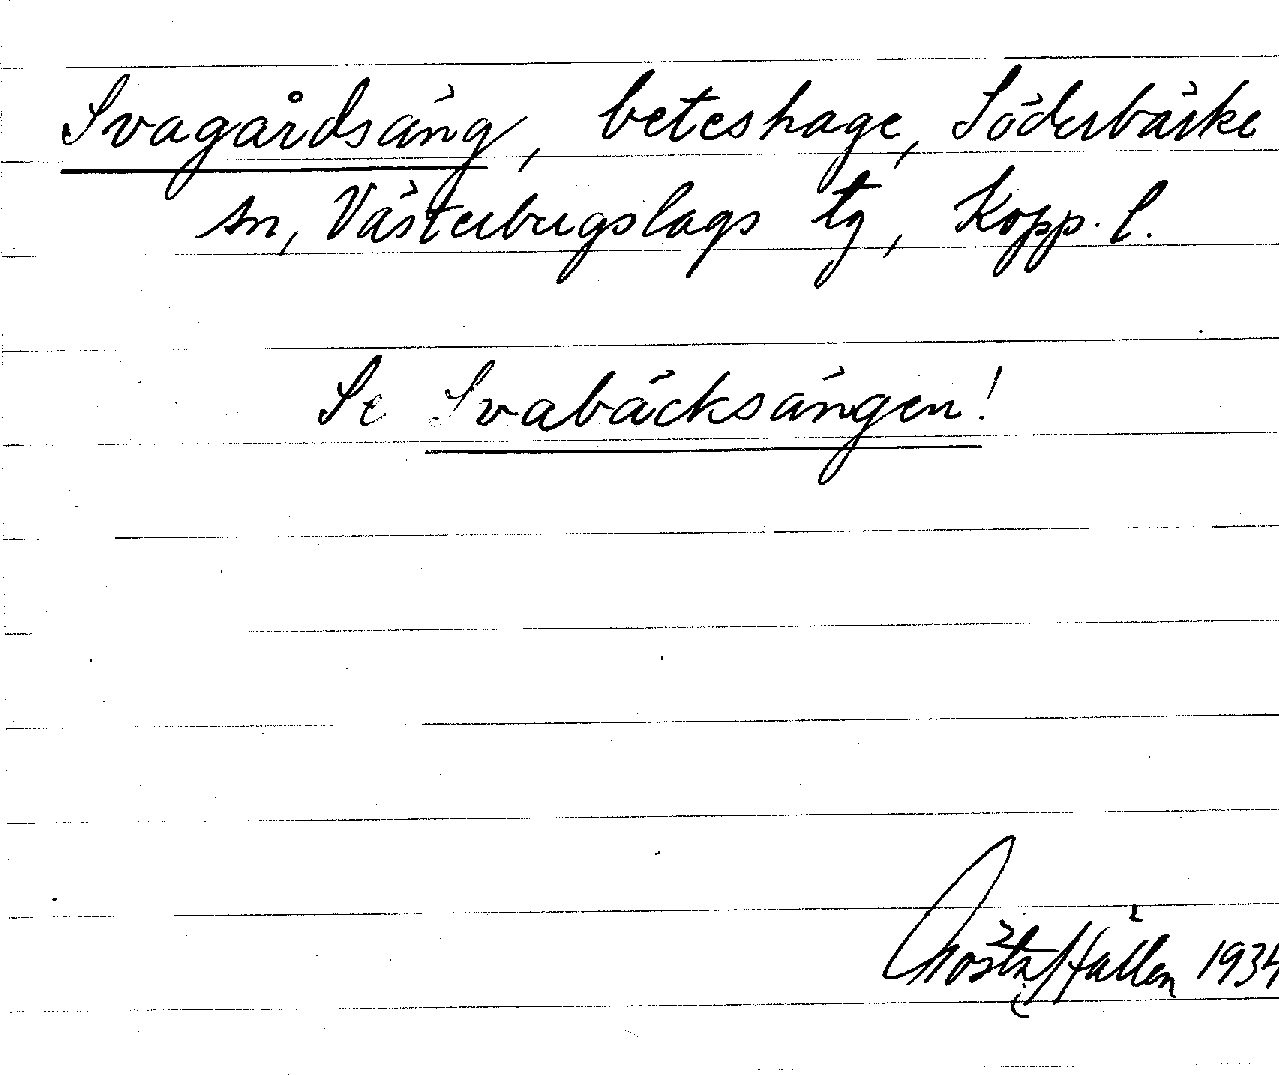 Svagårdsäng, beteshage, Söderbärke
sn, Västerbergslags tg, Kopp. l.
Se Svabäcksängen!
Gösta Hållen 1934